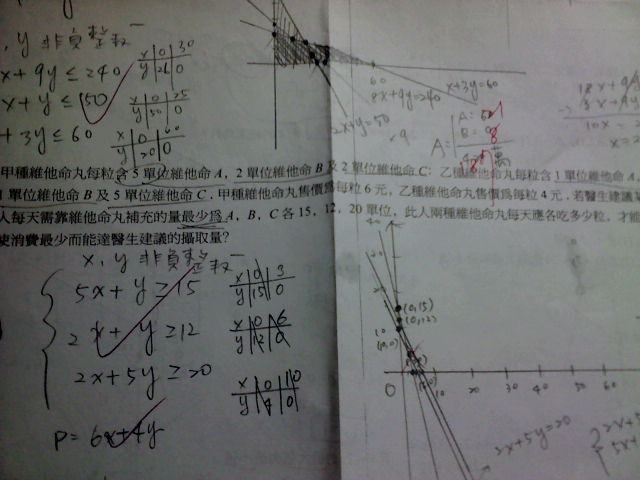 , y 非負整數
x + 9y ≤ 240
x + y ≤ 150
+ 3y ≤ 60
x 0 30
y 26 0
x 0 25
y 50 0
x 0 60
y 20 0
60
8x+9y=240
x+3y=60
2x+y=50
甲種維他命丸每粒含 5 單位維他命 A,2 單位維他命 B 及 2 單位維他命 C;乙種維他命丸每粒含 1 單位維他命 A,
1 單位維他命 B 及 5 單位維他命 C,甲種維他命丸售價為每粒 6 元,乙種維他命丸售價為每粒 4 元,若醫生建議
人每天需靠維他命丸補充的量最少為 A,B,C 各 15,12,20 單位,此人兩種維他命丸每天應各吃多少粒,才能
使消費最少而能達醫生建議的攝取量?
x, y 非負整數
5x + y ≥ 15
2x + y ≥ 12
2x + 5y ≥ 20
P = 6x+4y
x 0 3
y 15 0
x 0 6
y 12 0
x 0 10
y 4 0
(0,15)
(0,12)
10
0 10 20 30 40 50 60
2x+5y=20